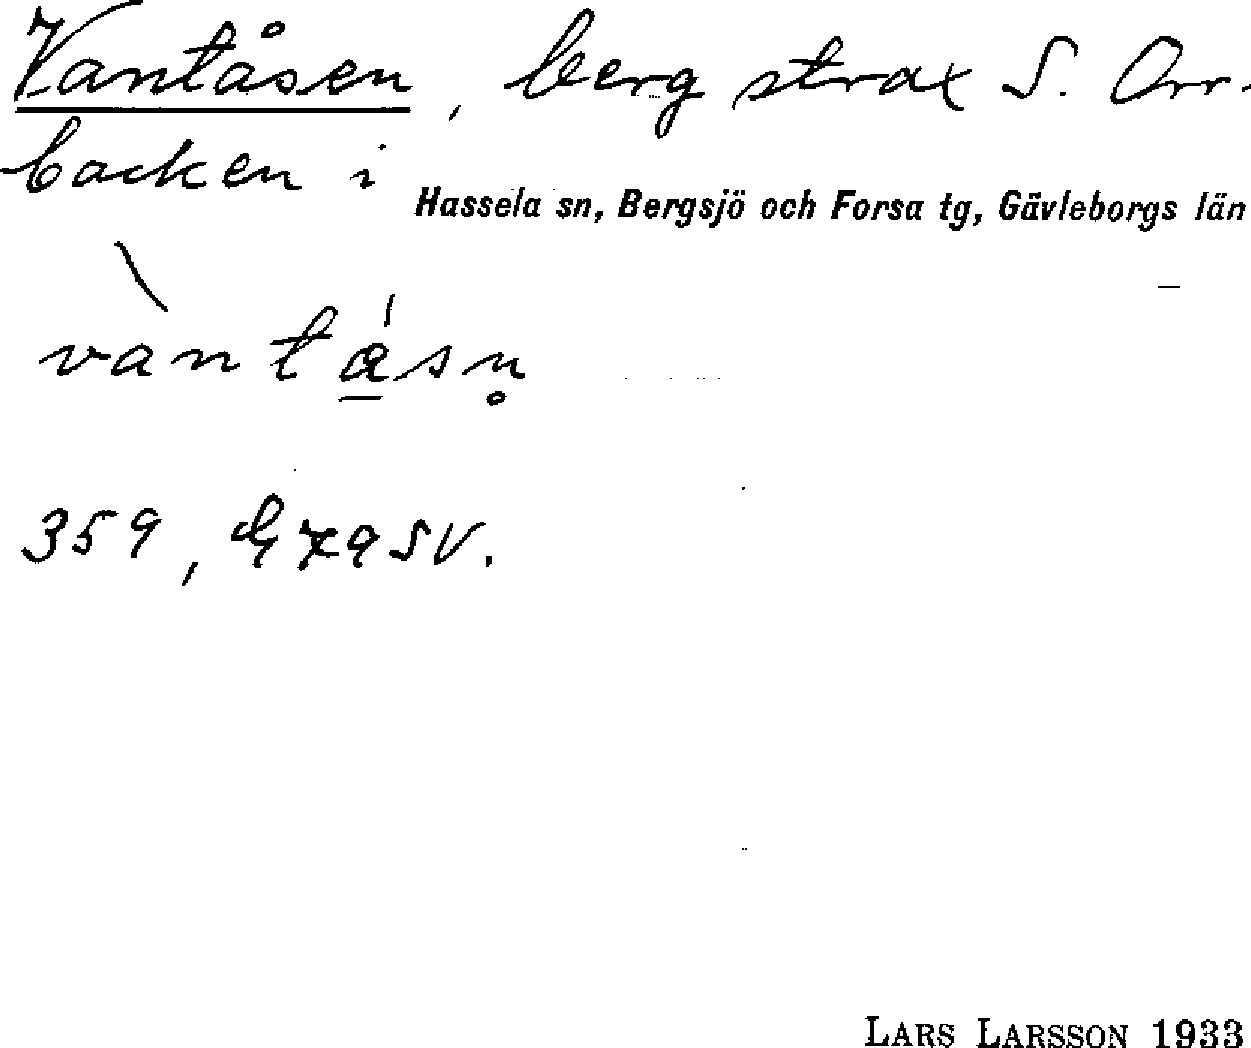 Vantåsen, berg strax S. Orr-
backen i
Hassela sn, Bergsjö och Forsa tg, Gävleborgs län
vàntásn̥
359, G79SV.
LARS LARSSON 1933